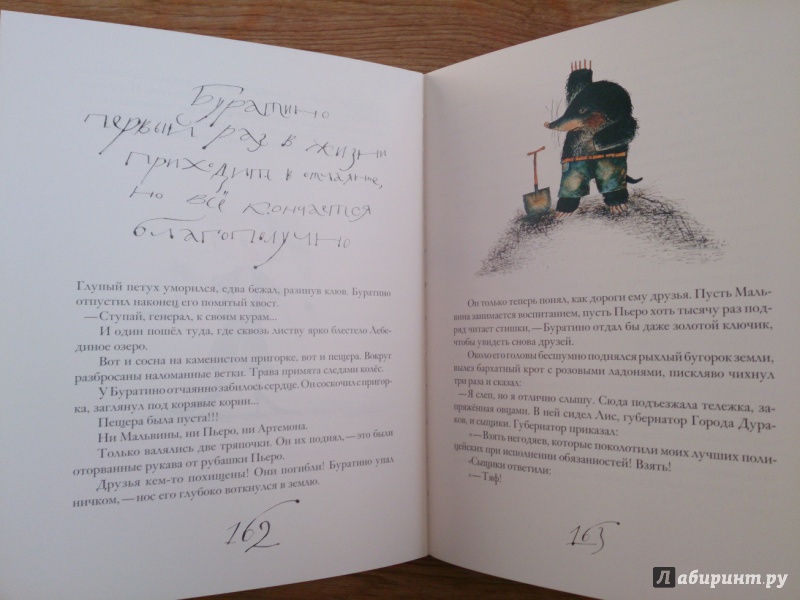 Буратино
первый раз в жизни
приходит в отчаяние,
но всё кончается
благополучно
Глупый петух уморился, едва бежал, разинув клюв. Буратино
отпустил наконец его помятый хвост.
— Ступай, генерал, к своим курам...
И один пошёл туда, где сквозь листву ярко блестело Лебе-
диное озеро.
Вот и сосна на каменистом пригорке, вот и пещера. Вокруг
разбросаны наломанные ветки. Трава примята следами колёс.
У Буратино отчаянно забилось сердце. Он соскочил с пригор-
ка, заглянул под корявые корни...
Пещера была пуста!!!
Ни Мальвины, ни Пьеро, ни Артемона.
Только валялись две тряпочки. Он их поднял, — это были
оторванные рукава от рубашки Пьеро.
Друзья кем-то похищены! Они погибли! Буратино упал
ничком, — нос его глубоко воткнулся в землю.
162
Он только теперь понял, как дороги ему друзья. Пусть Маль-
вина занимается воспитанием, пусть Пьеро хоть тысячу раз под-
ряд читает стишки, — Буратино отдал бы даже золотой ключик,
чтобы увидеть снова друзей.
Около его головы бесшумно поднялся рыхлый бугорок земли,
вылез бархатный крот с розовыми ладонями, пискляво чихнул
три раза и сказал:
— Я слеп, но я отлично слышу. Сюда подъезжала тележка, за-
пряжённая овцами. В ней сидел Лис, губернатор Города Дура-
ков, и сыщики. Губернатор приказал:
»— Взять негодяев, которые поколотили моих лучших поли-
цейских при исполнении обязанностей! Взять!
»Сыщики ответили:
»— Тяф!
163
Лабиринт.ру